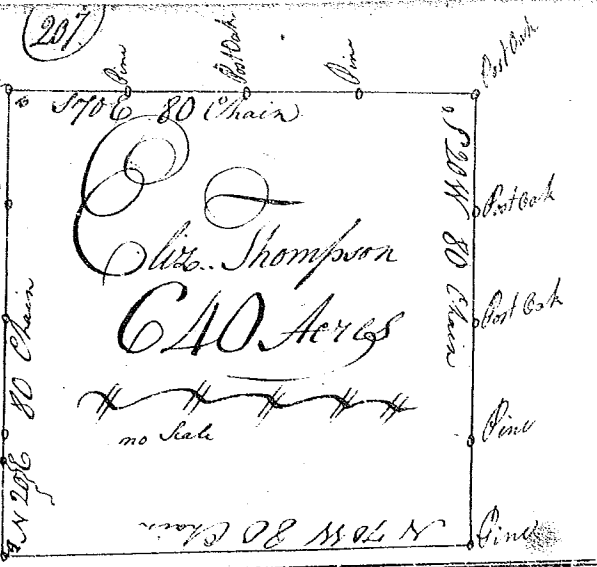 207
Pine
Post Oak
Pine
Post Oak
S70E 80 Chain
S 20W 80 Chain
Post Oak
Post Oak
Pine
Pine
Eliz. Thompson
640 Acres
no Scale
N 20E 80 Chain
N 70W 80 Chain